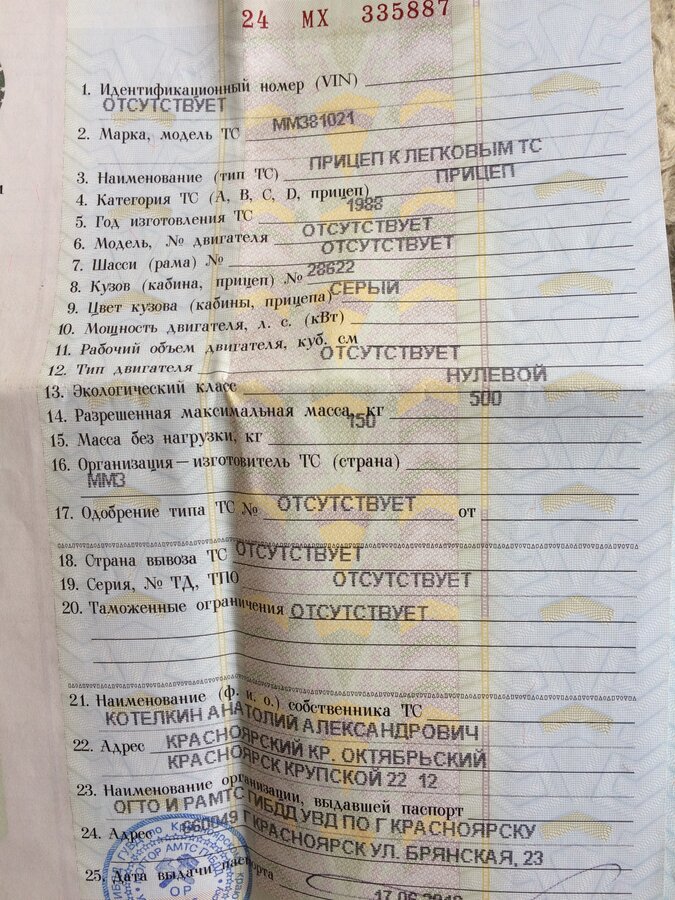 24 МХ 335887
1. Идентификационный номер (VIN)
ОТСУТСТВУЕТ
2. Марка, модель ТС ММЗ81021
ПРИЦЕП К ЛЕГКОВЫМ ТС
3. Наименование (тип ТС)
ПРИЦЕП
4. Категория ТС (А, В, С, D, прицеп)
1988
5. Год изготовления ТС
ОТСУТСТВУЕТ
6. Модель, № двигателя
ОТСУТСТВУЕТ
7. Шасси (рама) №
28622
8. Кузов (кабина, прицеп) №
СЕРЫЙ
9. Цвет кузова (кабины, прицепа)
10. Мощность двигателя, л. с. (кВт)
11. Рабочий объем двигателя, куб. см
ОТСУТСТВУЕТ
12. Тип двигателя
НУЛЕВОЙ
13. Экологический класс
500
14. Разрешенная максимальная масса, кг
150
15. Масса без нагрузки, кг
16. Организация—изготовитель ТС (страна)
ММЗ
17. Одобрение типа ТС № ОТСУТСТВУЕТ от
18. Страна вывоза ТС ОТСУТСТВУЕТ
19. Серия, № ТД, ТПО ОТСУТСТВУЕТ
20. Таможенные ограничения ОТСУТСТВУЕТ
21. Наименование (ф. и. о.) собственника ТС
КОТЕЛКИН АНАТОЛИЙ АЛЕКСАНДРОВИЧ
22. Адрес КРАСНОЯРСКИЙ КР. ОКТЯБРЬСКИЙ
КРАСНОЯРСК КРУПСКОЙ 22 12
23. Наименование организации, выдавшей паспорт
ОГТО И РАМТС ГИБДД УВД ПО Г КРАСНОЯРСКУ
24. Адрес 660049 Г КРАСНОЯРСК УЛ. БРЯНСКАЯ, 23
25. Дата выдачи паспорта